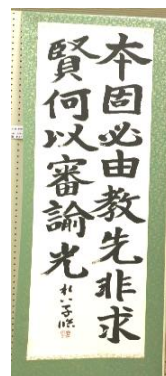 本固必由教先非求
賢何以審諭光